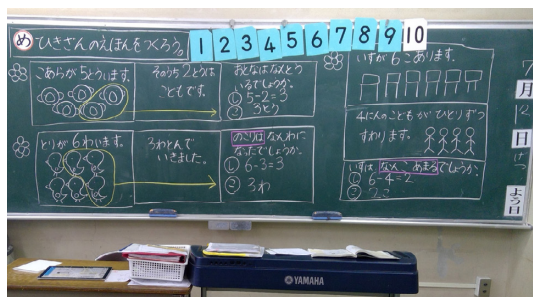 め ひきざんのえほんをつくろう。
1 2 3 4 5 6 7 8 9 10
こあらが5とういます。
そのうち2とうは
こどもです。
おとなはなんとう
いるでしょうか。
し 5-2=3
こ 3とう
とりが6わいます。
3わとんで
いきました。
のこりはなんわに
なったでしょうか。
し 6-3=3
こ 3わ
いすが6こあります。
4にんのこどもがひとりずつ
すわります。
いすは、なんこあまるでしょうか。
し 6-4=2
こ 2こ
7
月
日
よう日
YAMAHA